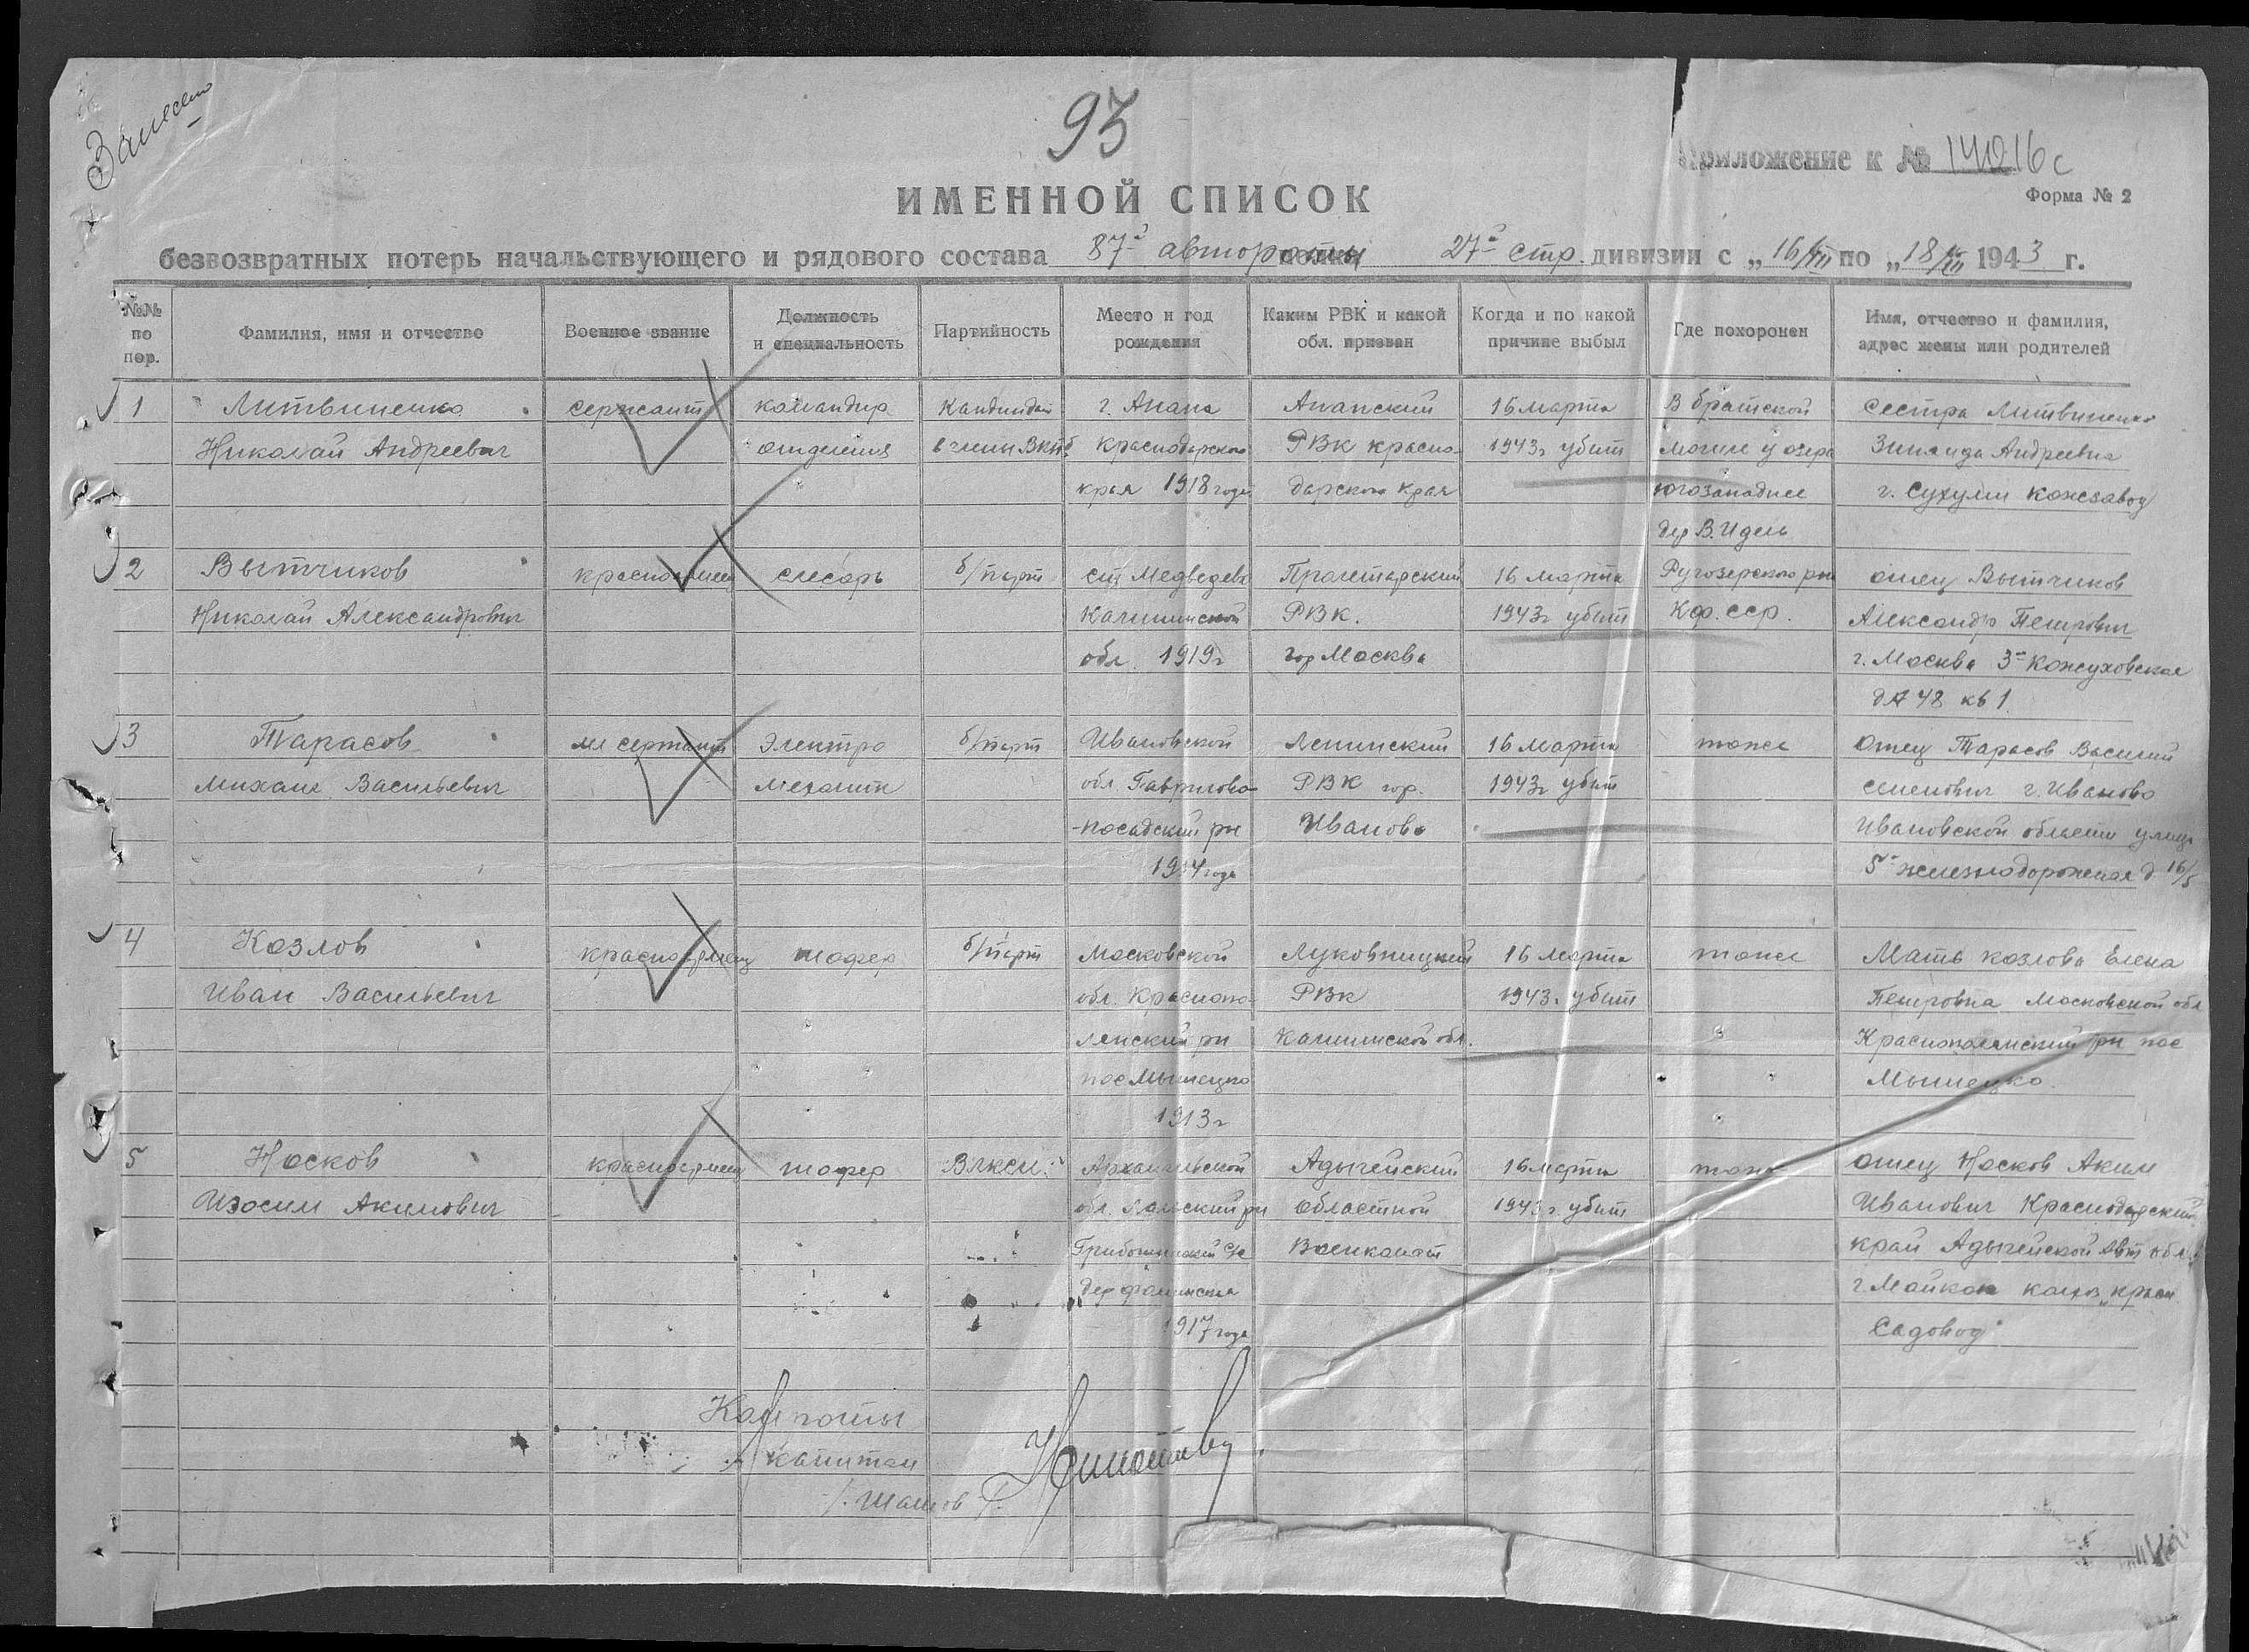 Занесено
93
Приложение к № 14216с
Форма № 2
ИМЕННОЙ СПИСОК
безвозвратных потерь начальствующего и рядового состава 87й автороты 27й стр. дивизии с „16/III по „18/III 1943 г.
№№ по пор.
Фамилия, имя и отчество
Военное звание
Должность и специальность
Партийность
Место и год рождения
Каким РВК и какой обл. призван
Когда и по какой причине выбыл
Где похоронен
Имя, отчество и фамилия, адрес жены или родителей
1 Литвиненко сержант командир Кандидат г. Анапа Анапский 16 марта В братской сестра Литвиненко
Николай Андреевич отделения в члены ВКПб Краснодарского РВК красно- 1943г убит могиле у озера Зинаида Андреевна
края 1918 года дарского края югозападнее г. Сухуми кожзавод
дер В. Идель
2 Вытчиков красноармеец слесарь б/парт ст. Медведево Пролетарский 16 марта Ругозерского рна отец Вытчиков
Николай Александрович Калининской РВК. 1943г убит Кф. сср. Александр Петрович
обл. 1919г гор Москва г. Москва 3я Кожуховская
д 48 кв 1.
3 Тарасов мл сержант электро б/парт Ивановской Ленинский 16 марта тоже Отец Тарасов Василий
Михаил Васильевич механик обл. Гаврилово- РВК гор. 1943г убит семенович г. Иваново
-посадский рн Иваново Ивановской области улица
1914 года 5я железнодорожная д. 16/5
4 Козлов красноармеец шофер б/парт Московской Луковницкий 16 марта тоже Мать козлова Елена
Иван Васильевич обл. Краснопо- РВК 1943г. убит Петровна Московской обл
лянский рн Калининской обл. Краснополянский рн пос
пос Мышецко Мышецко.
1913г
5 Носков красноармеец шофер ВЛКСМ Архангельской Адыгейский 16 марта тоже отец Носков Аким
Изосим Акимович обл. Лальский рн областной 1943г. убит Иванович Краснодарский
с/с Военкомат край Адыгейской авт обл.
дер 1917 года г Майкоп колхоз „красн
Садовод"
Ком роты
капитан
/. Шамов /.